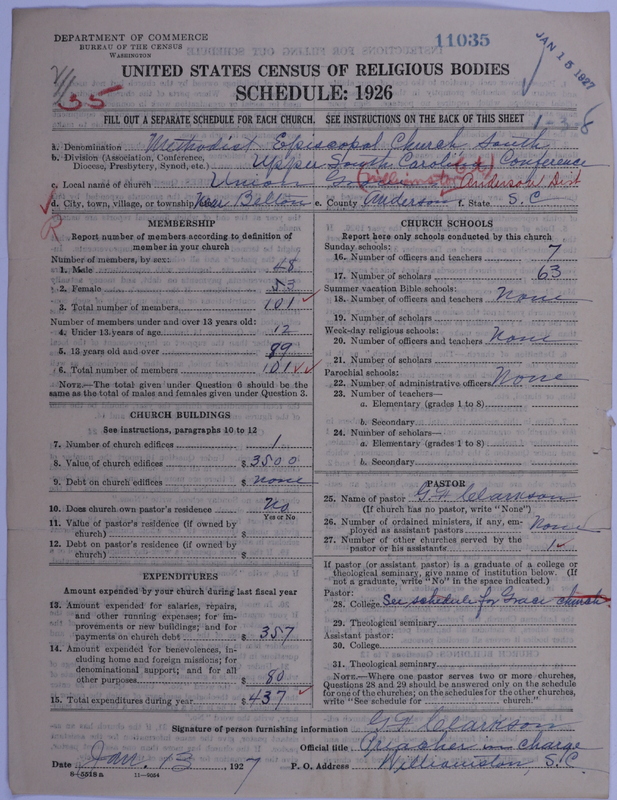 DEPARTMENT OF COMMERCE
BUREAU OF THE CENSUS
WASHINGTON
11035
JAN 15 1927
35
UNITED STATES CENSUS OF RELIGIOUS BODIES
SCHEDULE: 1926
FILL OUT A SEPARATE SCHEDULE FOR EACH CHURCH. SEE INSTRUCTIONS ON THE BACK OF THIS SHEET
1-3-8
a. Denomination Methodist Episcopal Church South
b. Division (Association, Conference, Diocese, Presbytery, Synod, etc.) Upper South Carolina Conference
c. Local name of church Union (Williamston Ct) Anderson Dist
d. City, town, village, or township Near Belton e. County Anderson f. State S.C
R
MEMBERSHIP
Report number of members according to definition of member in your church
Number of members, by sex:
1. Male 48
2. Female 53
3. Total number of members 101
Number of members under and over 13 years old:
4. Under 13 years of age 12
5. 13 years old and over 89
6. Total number of members 101
NOTE.—The total given under Question 6 should be the same as the total of males and females given under Question 3.
CHURCH BUILDINGS
See instructions, paragraphs 10 to 12
7. Number of church edifices 1
8. Value of church edifices $ 3500
9. Debt on church edifices $ none
10. Does church own pastor's residence No
Yes or No
11. Value of pastor's residence (if owned by church) $
12. Debt on pastor's residence (if owned by church) $
EXPENDITURES
Amount expended by your church during last fiscal year
13. Amount expended for salaries, repairs, and other running expenses; for improvements or new buildings; and for payments on church debt $ 357
14. Amount expended for benevolences, including home and foreign missions; for denominational support; and for all other purposes $ 80
15. Total expenditures during year $ 437
CHURCH SCHOOLS
Report here only schools conducted by this church
Sunday schools:
16. Number of officers and teachers 7
17. Number of scholars 63
Summer vacation Bible schools:
18. Number of officers and teachers None
19. Number of scholars
Week-day religious schools:
20. Number of officers and teachers None
21. Number of scholars
Parochial schools:
22. Number of administrative officers None
23. Number of teachers—
a. Elementary (grades 1 to 8)
b. Secondary
24. Number of scholars—
a. Elementary (grades 1 to 8)
b. Secondary
PASTOR
25. Name of pastor G F Clarkson
(If church has no pastor, write "None")
26. Number of ordained ministers, if any, employed as assistant pastors None
27. Number of other churches served by the pastor or his assistants 1
If pastor (or assistant pastor) is a graduate of a college or theological seminary, give name of institution below. (If not a graduate, write "No" in the space indicated.)
Pastor:
28. College See schedule for Grace church
29. Theological seminary
Assistant pastor:
30. College
31. Theological seminary
NOTE.—Where one pastor serves two or more churches, Questions 28 and 29 should be answered only on the schedule for one of the churches; on the schedules for the other churches, write "See schedule for church."
Signature of person furnishing information G F Clarkson
Official title Preacher in charge
Date Jan. 13 1927 P. O. Address Williamston, S.C.
8-5518 a 11-9054